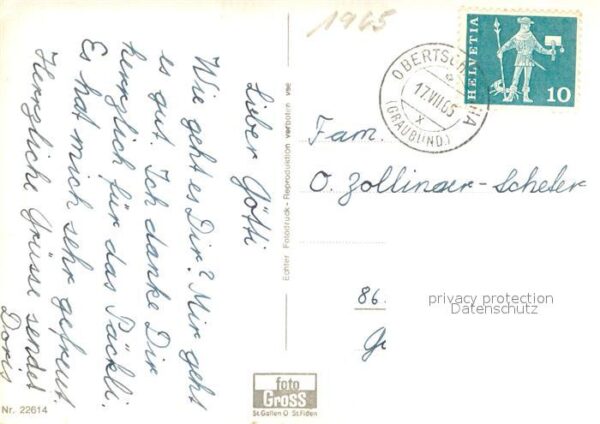 1965
Lieber Götti
Wie geht es Dir? Mir geht
es gut. Ich danke Dir
herrzlich für das Päckli.
Es hat mich sehr gefreut.
Herrzliche Grüsse sendet
Doris
HELVETIA
10
OBERTSCH
17.VII.65
X
(GRAUBÜND.)
Fam.
O. Zollinger-Scheler
86.
privacy protection
Datenschutz
Echter Fotodruck - Reproduktion verboten
foto
Gross
St.Gallen O St.Fiden
Nr. 22614